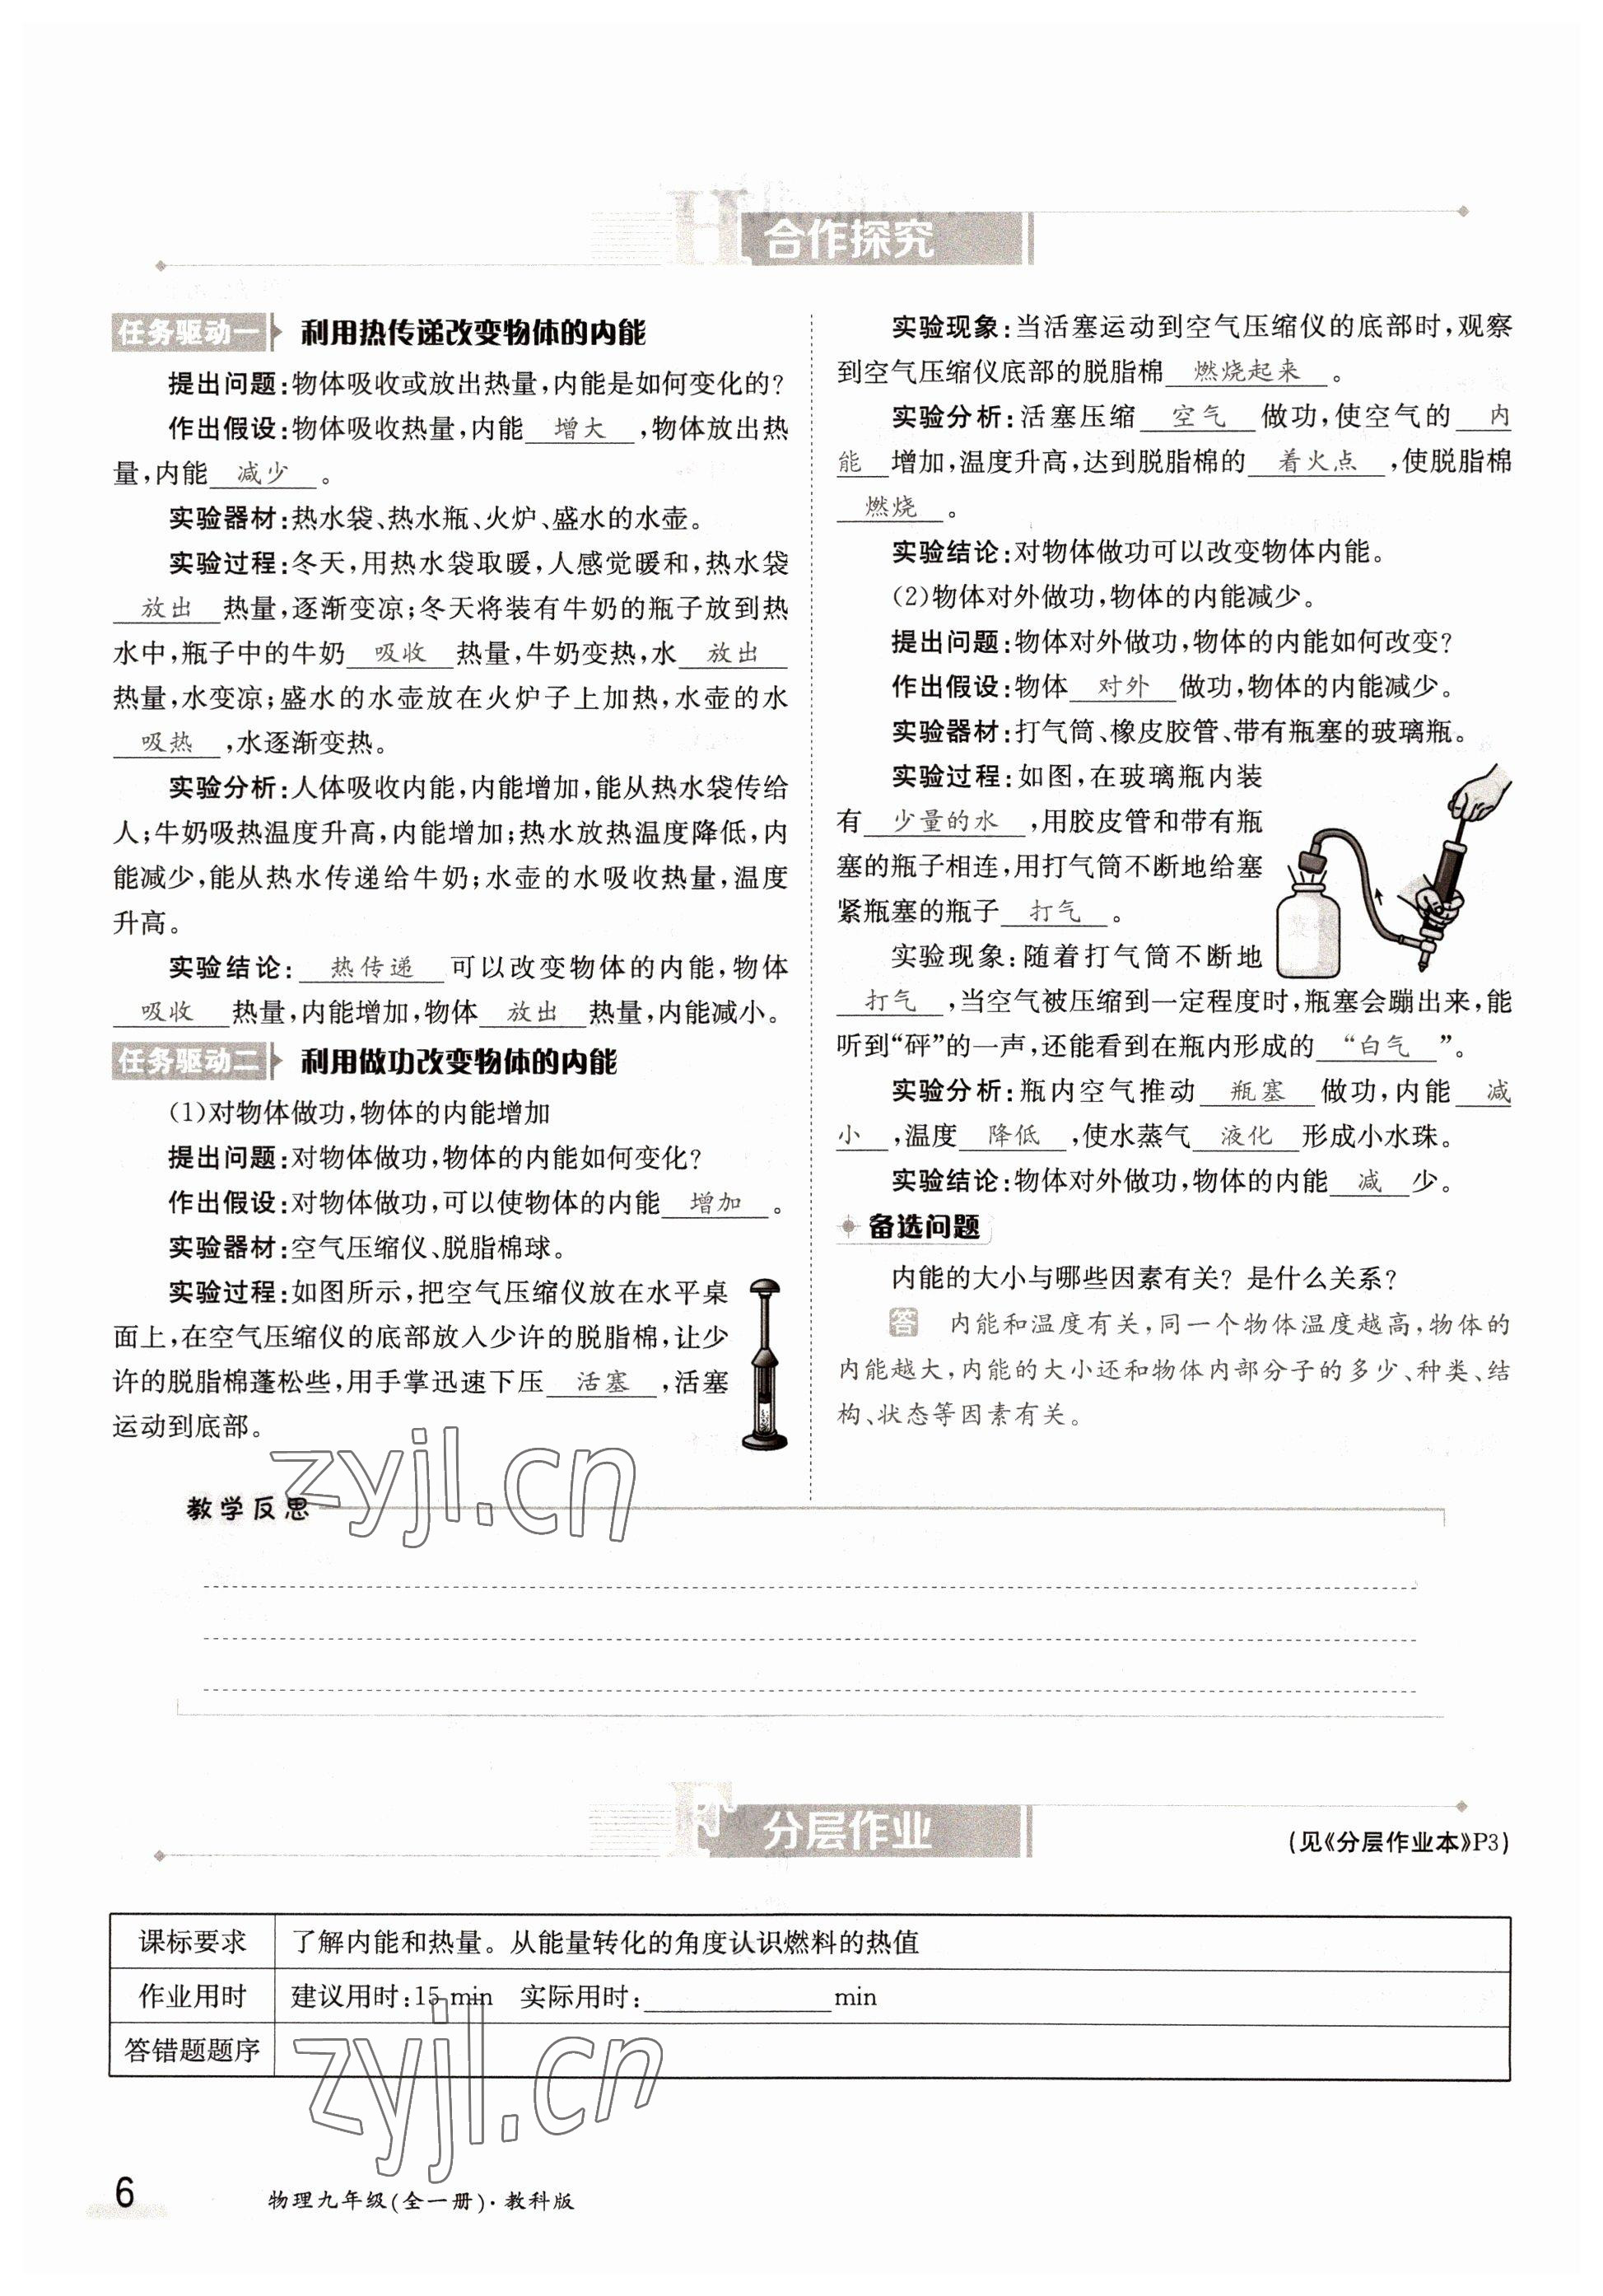 合作探究
任务驱动一 利用热传递改变物体的内能
提出问题:物体吸收或放出热量,内能是如何变化的?
作出假设:物体吸收热量,内能 增大 ,物体放出热
量,内能 减少 。
实验器材:热水袋、热水瓶、火炉、盛水的水壶。
实验过程:冬天,用热水袋取暖,人感觉暖和,热水袋
放出 热量,逐渐变凉;冬天将装有牛奶的瓶子放到热
水中,瓶子中的牛奶 吸收 热量,牛奶变热,水 放出
热量,水变凉;盛水的水壶放在火炉子上加热,水壶的水
吸热 ,水逐渐变热。
实验分析:人体吸收内能,内能增加,能从热水袋传给
人;牛奶吸热温度升高,内能增加;热水放热温度降低,内
能减少,能从热水传递给牛奶;水壶的水吸收热量,温度
升高。
实验结论: 热传递 可以改变物体的内能,物体
吸收 热量,内能增加,物体 放出 热量,内能减小。
任务驱动二 利用做功改变物体的内能
(1)对物体做功,物体的内能增加
提出问题:对物体做功,物体的内能如何变化?
作出假设:对物体做功,可以使物体的内能 增加 。
实验器材:空气压缩仪、脱脂棉球。
实验过程:如图所示,把空气压缩仪放在水平桌
面上,在空气压缩仪的底部放入少许的脱脂棉,让少
许的脱脂棉蓬松些,用手掌迅速下压 活塞 ,活塞
运动到底部。
实验现象:当活塞运动到空气压缩仪的底部时,观察
到空气压缩仪底部的脱脂棉 燃烧起来 。
实验分析:活塞压缩 空气 做功,使空气的 内
能 增加,温度升高,达到脱脂棉的 着火点 ,使脱脂棉
燃烧 。
实验结论:对物体做功可以改变物体内能。
(2)物体对外做功,物体的内能减少。
提出问题:物体对外做功,物体的内能如何改变?
作出假设:物体 对外 做功,物体的内能减少。
实验器材:打气筒、橡皮胶管、带有瓶塞的玻璃瓶。
实验过程:如图,在玻璃瓶内装
有 少量的水 ,用胶皮管和带有瓶
塞的瓶子相连,用打气筒不断地给塞
紧瓶塞的瓶子 打气 。
实验现象:随着打气筒不断地
打气 ,当空气被压缩到一定程度时,瓶塞会蹦出来,能
听到“砰”的一声,还能看到在瓶内形成的 “白气 ”。
实验分析:瓶内空气推动 瓶塞 做功,内能 减
小 ,温度 降低 ,使水蒸气 液化 形成小水珠。
实验结论:物体对外做功,物体的内能 减 少。
备选问题
内能的大小与哪些因素有关? 是什么关系?
答 内能和温度有关,同一个物体温度越高,物体的
内能越大,内能的大小还和物体内部分子的多少、种类、结
构、状态等因素有关。
zyjl.cn
教学反思
分层作业
(见《分层作业本》P3)
课标要求 了解内能和热量。从能量转化的角度认识燃料的热值
作业用时 建议用时:15 min 实际用时: min
答错题题序
zyjl.cn
6
物理九年级(全一册)·教科版